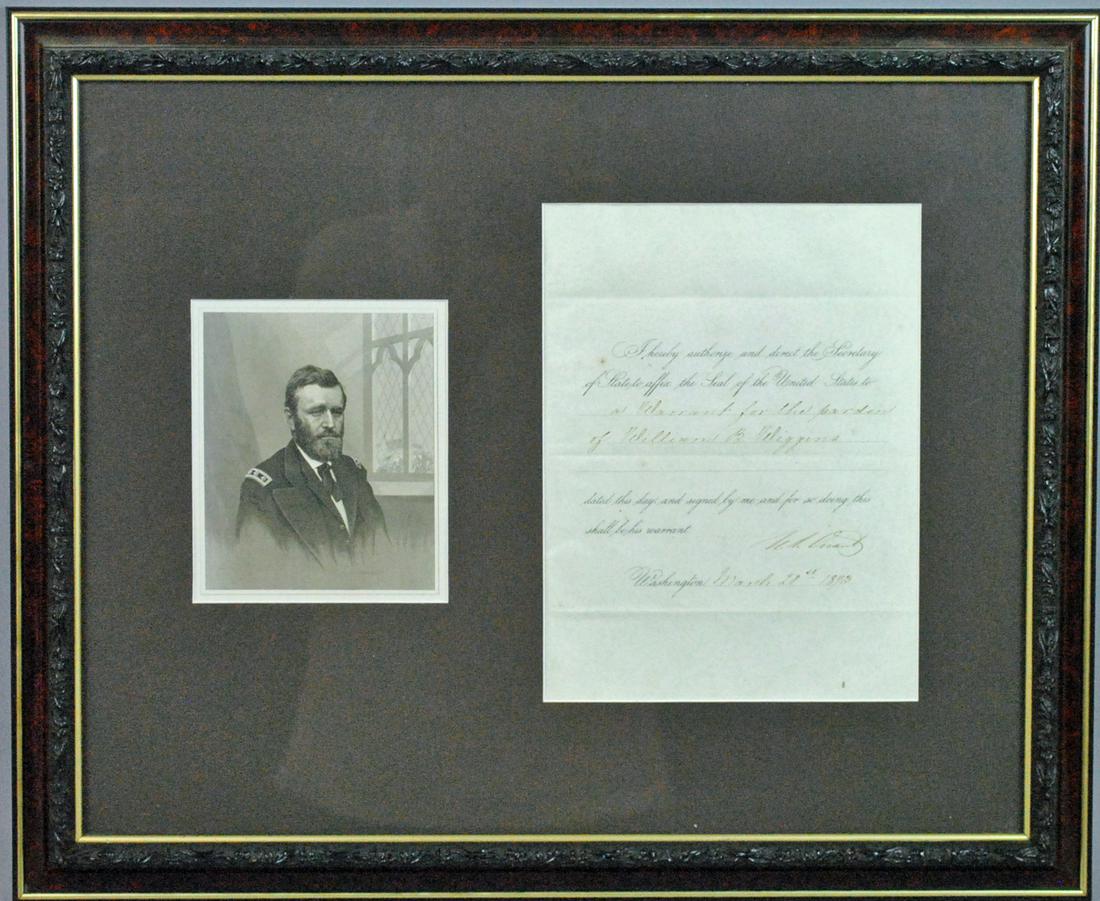 I hereby authorize and direct the Secretary
of State to affix the Seal of the United States to
a Warrant for the pardon
of William B. Wiggins
dated this day and signed by me and for so doing this
shall be his warrant.
U.S. Grant
Washington, March 28th 1873